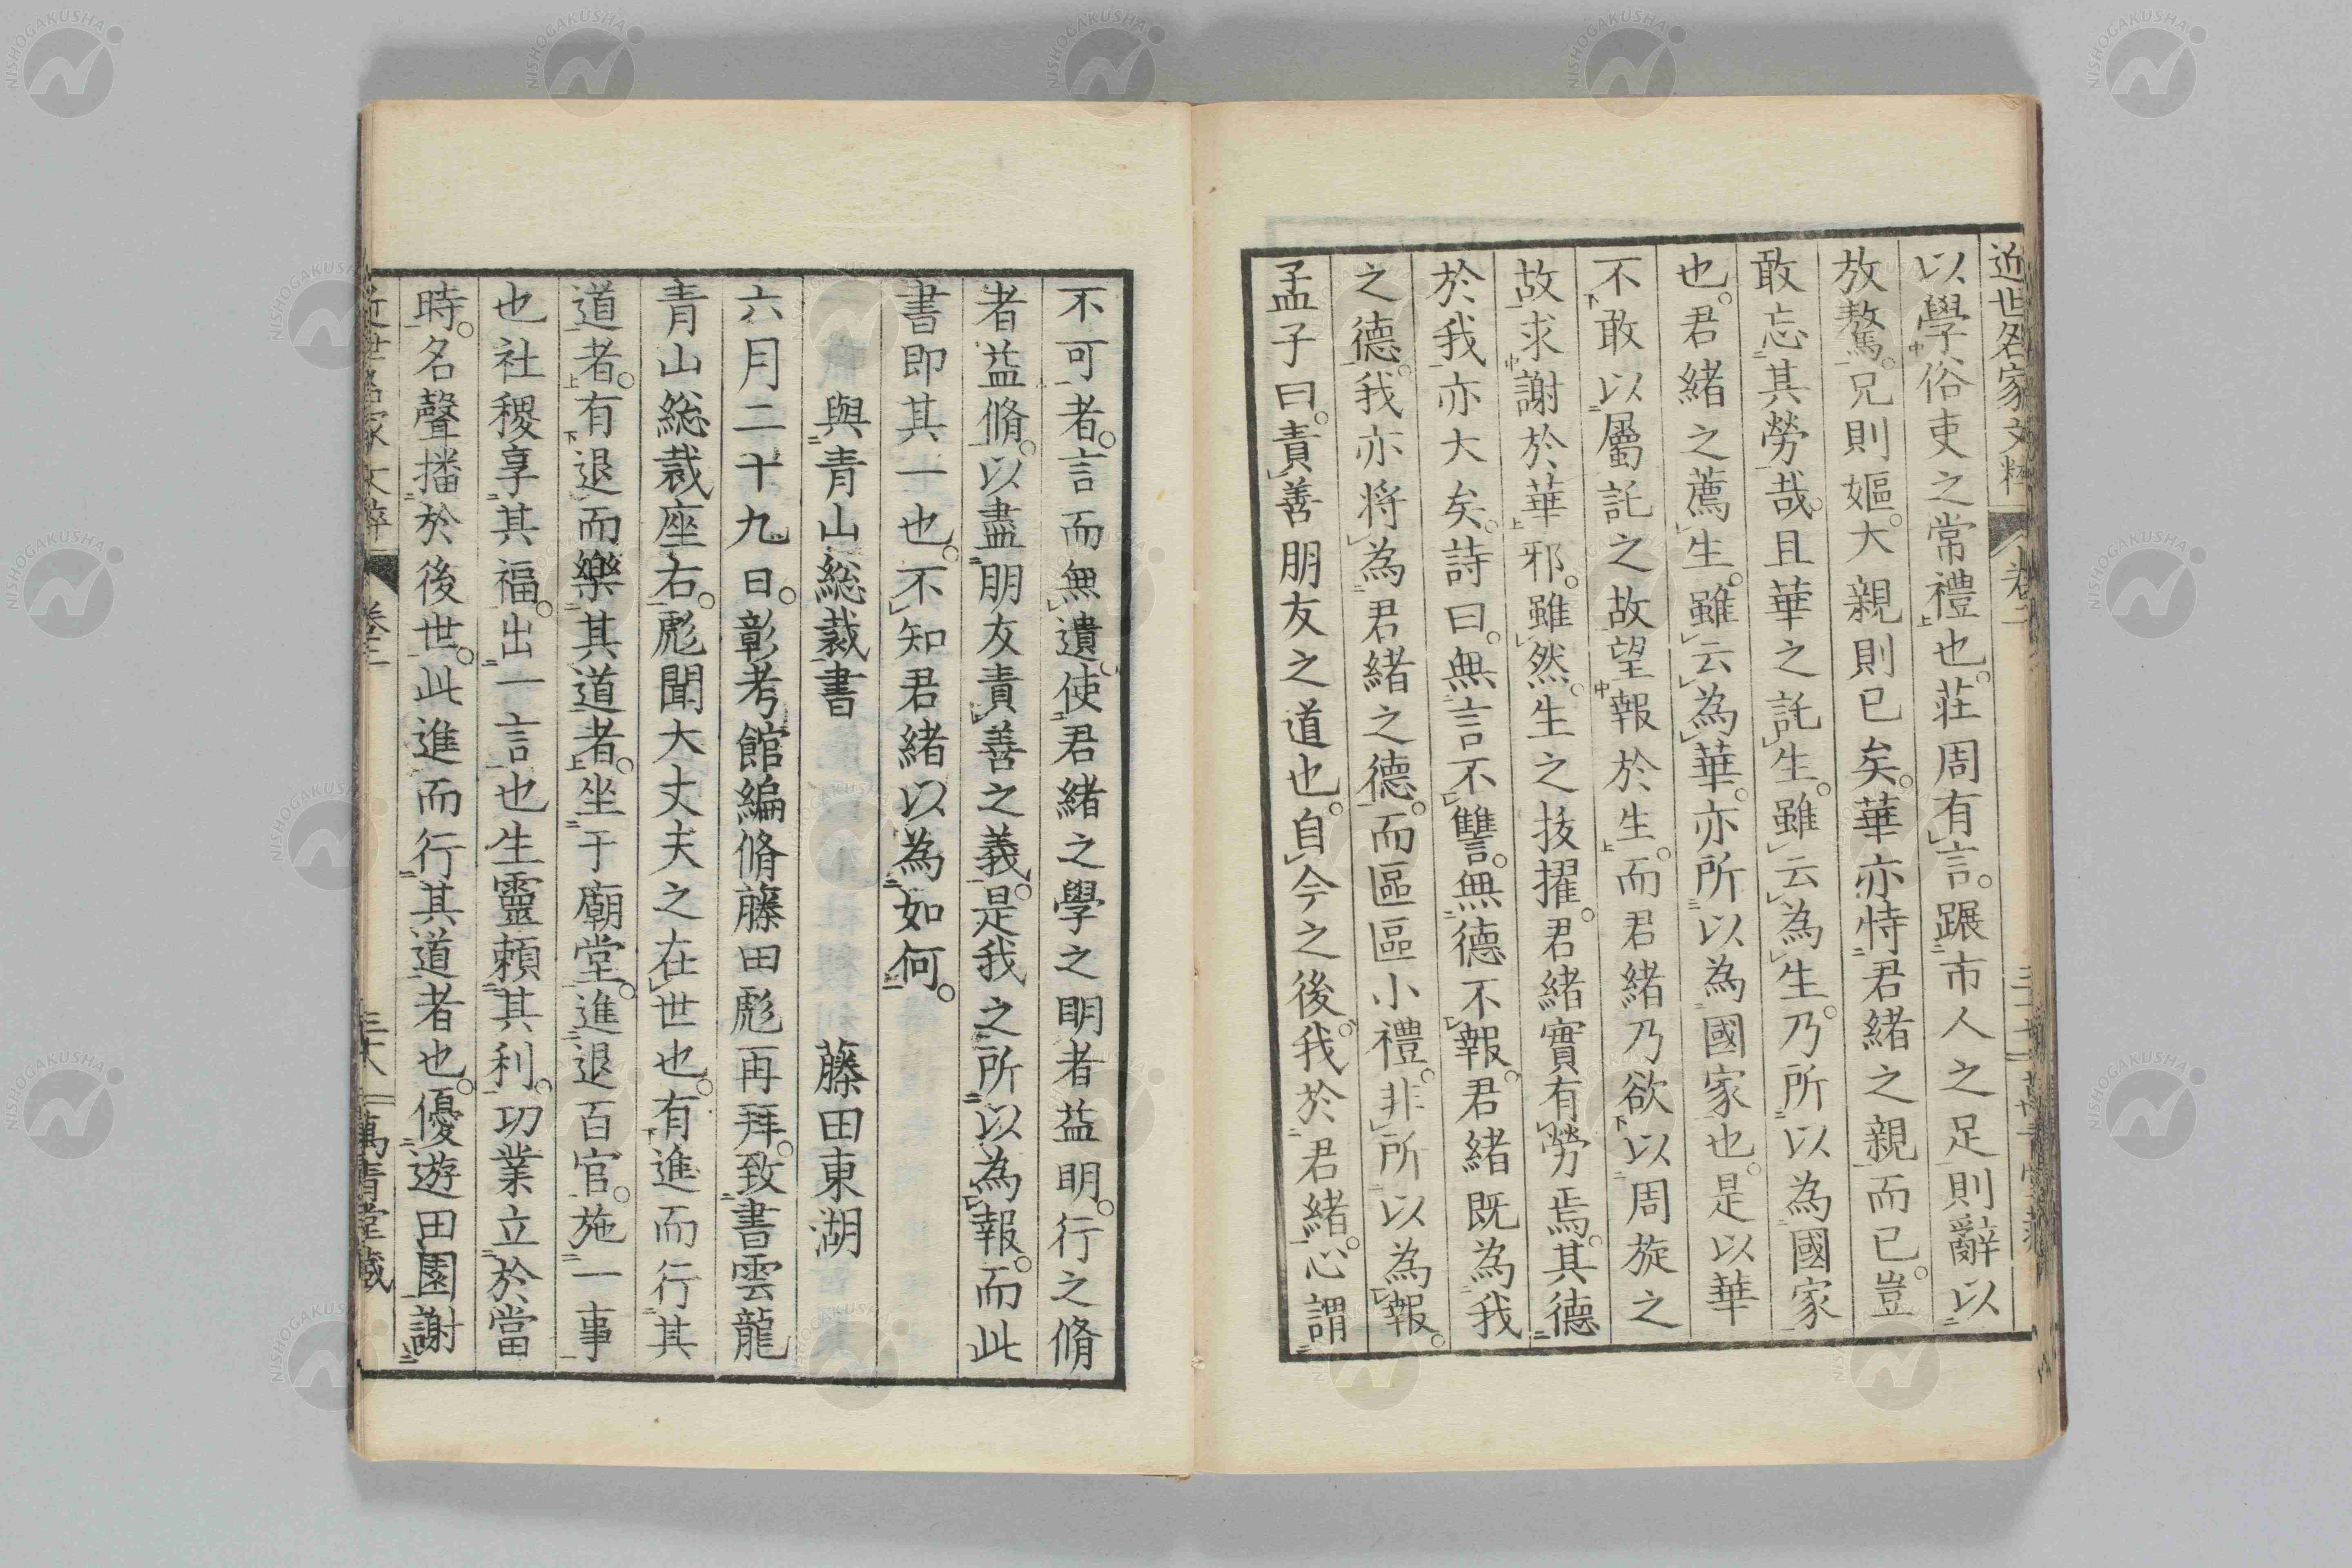 近世名家文粹 卷二
以學俗吏之常禮也。莊周有言。蹍市人之足則辭以
放驁。兄則嫗。大親則已矣。華亦恃君緒之親而已。豈
敢忘其勞哉。且華之託生。雖云為生。乃所以為國家
也。君緒之薦生。雖云為華。亦所以為國家也。是以華
不敢以屬託之故望報於生。而君緒乃欲以周旋之
故求謝於華邪。雖然。生之抜擢。君緒實有勞焉。其德
於我亦大矣。詩曰。無言不讐。無德不報。君緒既為我
之德。我亦将為君緒之德。而區區小禮。非所以為報。
孟子曰。責善朋友之道也。自今之後。我於君緒。心謂
不可者。言而無遺。使君緒之學之明者益明。行之脩
者益脩。以盡朋友責善之義。是我之所以為報。而此
書即其一也。不知君緒以為如何。
與青山総裁書 藤田東湖
六月二十九日。彰考館編脩藤田彪再拜。致書雲龍
青山総裁座右。彪聞大丈夫之在世也。有進而行其
道者。有退而樂其道者。坐于廟堂。進退百官。施一事
也社稷享其福。出一言也生靈頼其利。功業立於當
時。名聲播於後世。此進而行其道者也。優遊田園謝
近世名家文粹 卷二 三十八 萬青堂藏